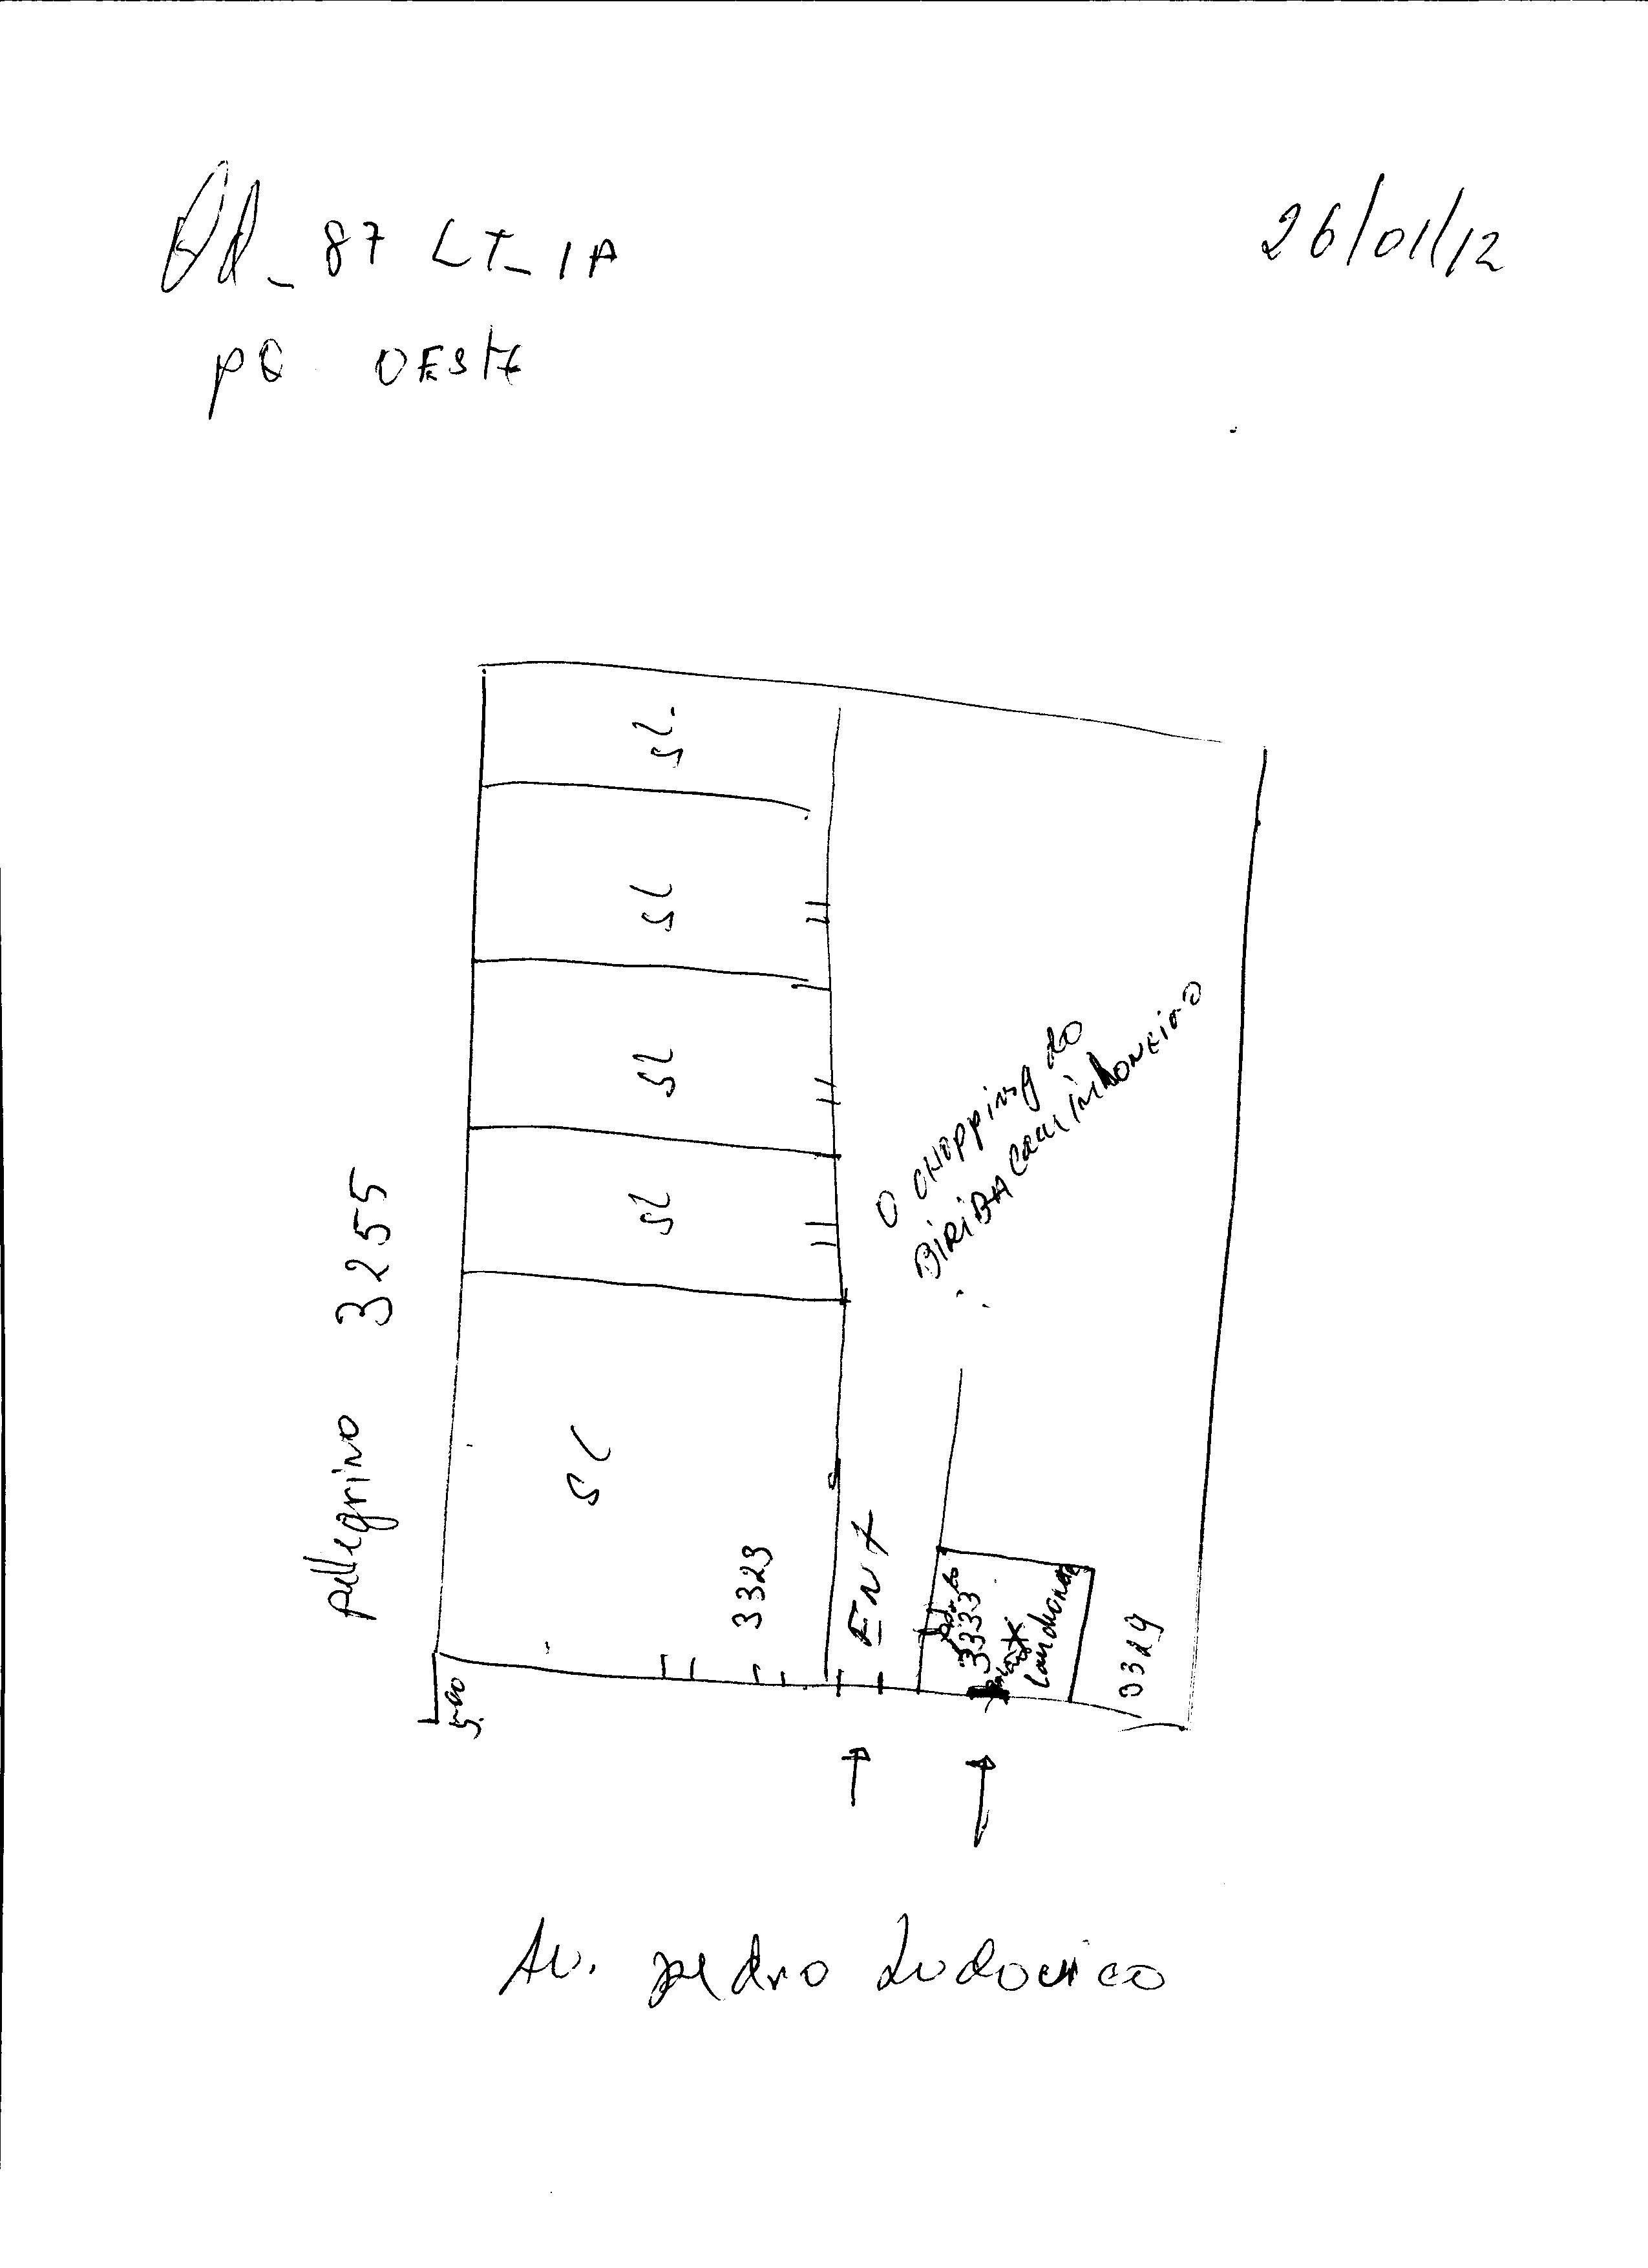 Qd_87 LT_1A
26/01/12
PQ OESTE
SL.
SL
SL
SL
SL
pellegrino 3255
O CHOPPING do
BIRIBA CaminhONEiro
3323
ENT
3333
Lanchonete
3329
5.00
Av. pedro Ludovico